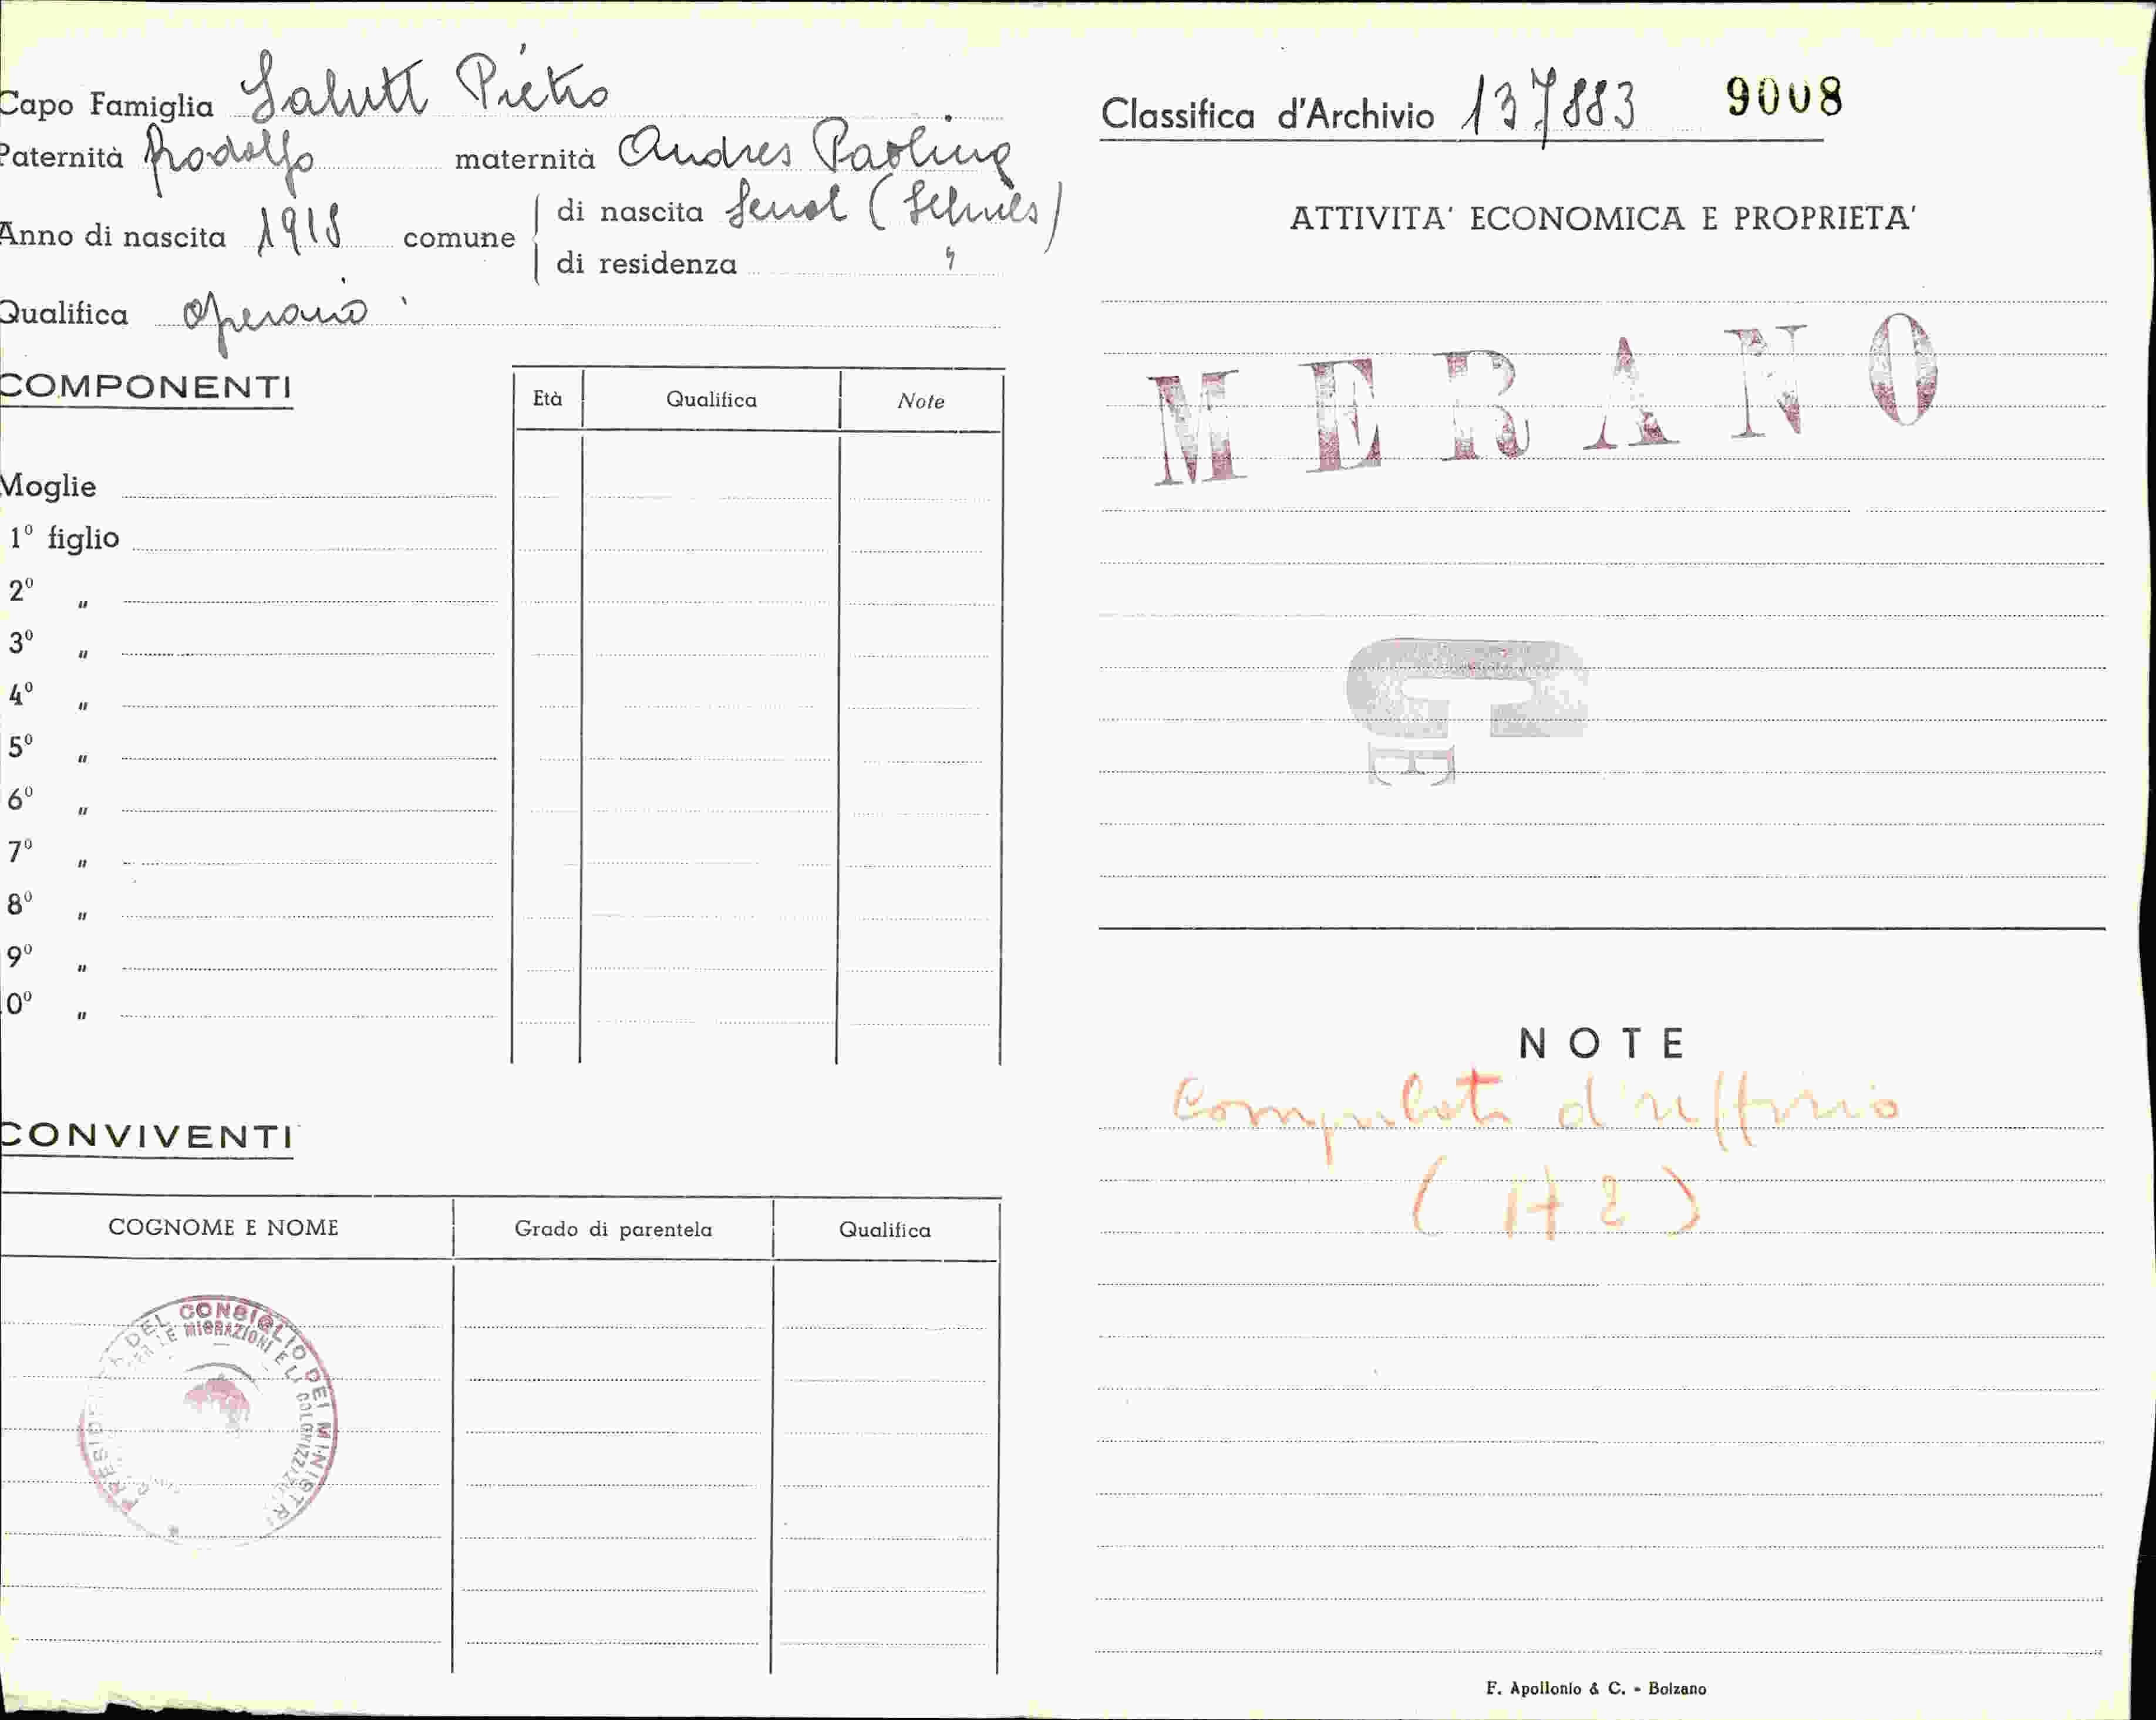 Capo Famiglia Salutt Pietro
Paternità Rodolfo maternità Andres Paolina
Anno di nascita 1918 comune di nascita Senol (Schuls)
di residenza "
Qualifica operaio
COMPONENTI
Età Qualifica Note
Moglie
1º figlio
2º "
3º "
4º "
5º "
6º "
7º "
8º "
9º "
0º "
CONVIVENTI
COGNOME E NOME Grado di parentela Qualifica
DEL CONSIGLIO DEI MINISTRI
LE MIGRAZIONI E LA COLONIZZAZIONE
Classifica d'Archivio 137883 9008
ATTIVITA' ECONOMICA E PROPRIETA'
MERANO
G
E
NOTE
d'ufficio
(A 2)
F. Apollonio & C. - Bolzano